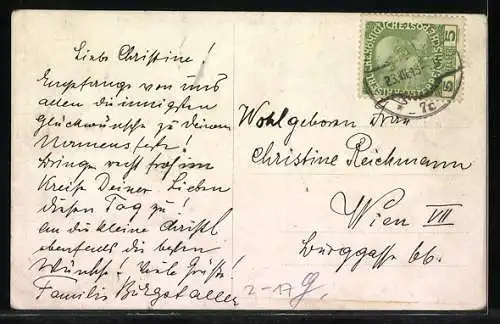 Liebe Christine!
Empfange von uns
allen die innigsten
Glückwünsche zu deinem
Namensfeste!
Bringe recht froh im
Kreise Deiner Lieben
diesen Tag zu!
An die kleine Christl
ebenfalls die besten
Wünsche! Viele Grüße!
Familie Burgstaller
Wohlgeboren Frau
Christine Reichmann
Wien VII
Burggasse 66.
2-17 g.
5 5